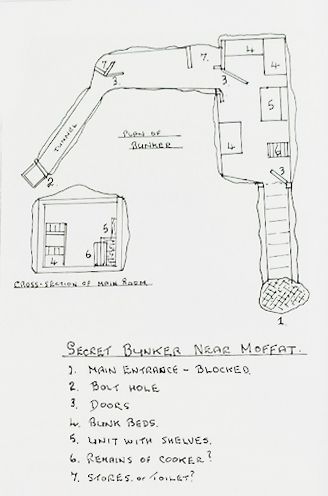 7.
7.
4
4
3
3
5
TUNNEL
PLAN OF
BUNKER
4
6
3
2
5
4
6
CROSS-SECTION OF MAIN ROOM
1
SECRET BUNKER NEAR MOFFAT.
1. MAIN ENTRANCE - BLOCKED.
2. BOLT HOLE
3. DOORS
4. BUNK BEDS.
5. UNIT WITH SHELVES.
6. REMAINS OF COOKER?
7. STORES. or TOILET?